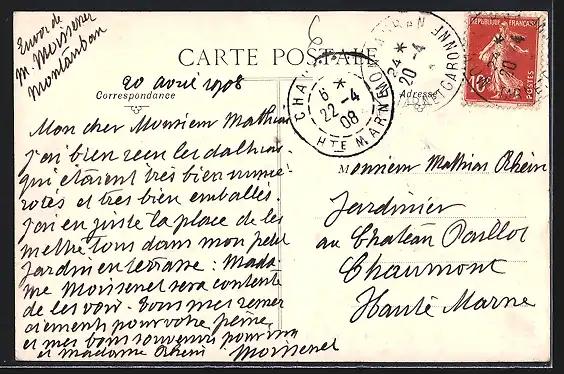 Envoi de
M. Moissenet
Montauban
CARTE POSTALE
20 avril 1908
Correspondance
Adresse
Mon cher Monsieur Mathias
J'ai bien reçu les dalhias
qui étaient très bien numé
rotés et très bien emballés.
J'ai eu juste la place de les
mettre tous dans mon petit
jardin en terrasse : Mada
me Moissenet sera contente
de les voir. Tous mes remer
ciements pour votre peine,
et mes bons souvenirs pour vous
et madame Rhein Moissenet
Monsieur Mathias Rhein
Jardinier
au Chateau Paillot
Chaumont
Haute Marne
CHAUMONT
6 *
22-4
08
HTE MARNE
24 *
20-4
GARONNE
REPUBLIQUE FRANÇAISE
10c
POSTES
24 *
20-4